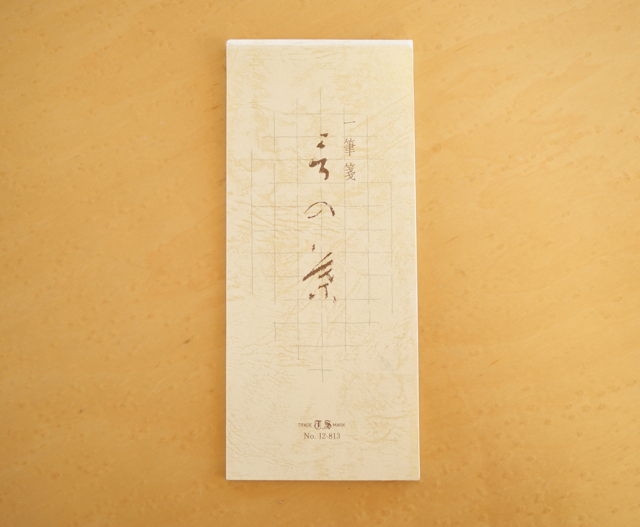 一筆箋
言の葉
TRADE TS MARK
No. 12-813